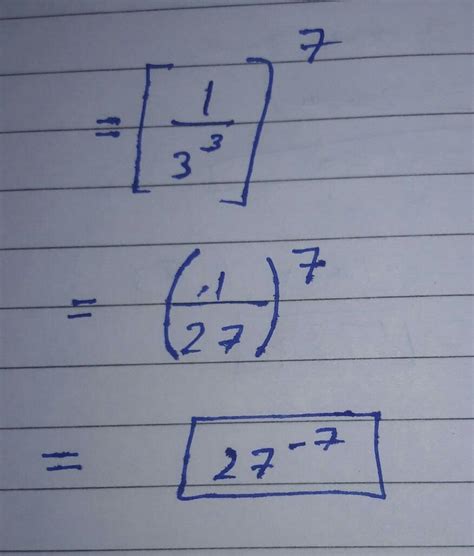 = [1/3^3]^7
= (1/27)^7
= 27^-7